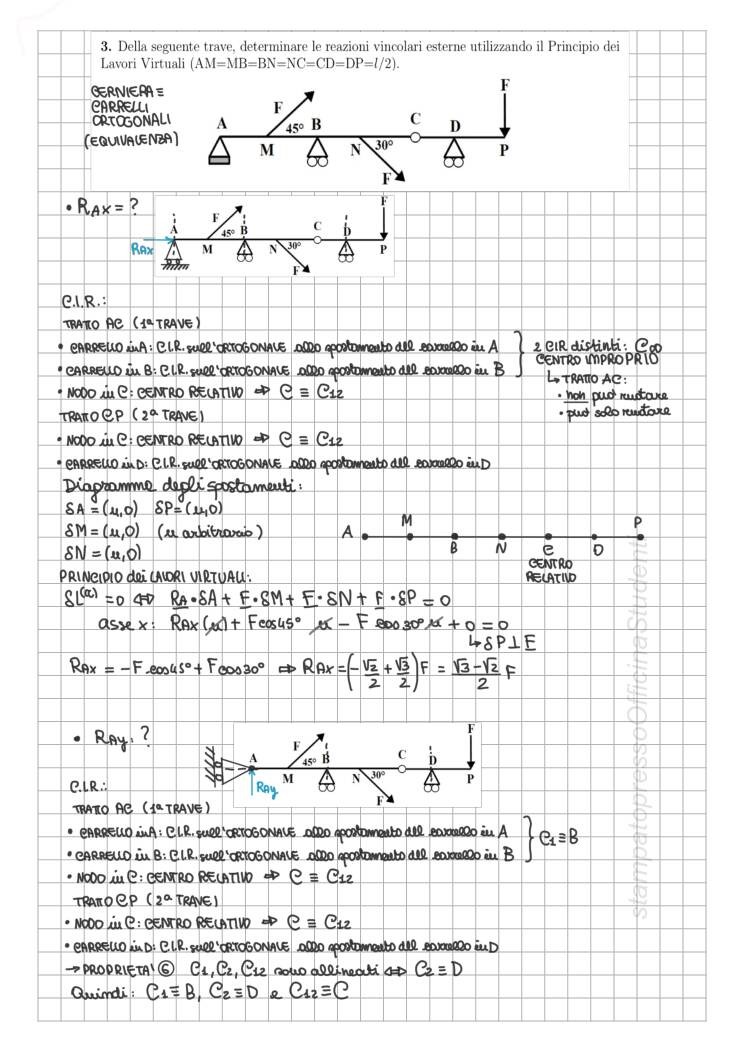 3. Della seguente trave, determinare le reazioni vincolari esterne utilizzando il Principio dei
Lavori Virtuali (AM=MB=BN=NC=CD=DP=l/2).
CERNIERA ≡
CARRELLI
ORTOGONALI
(EQUIVALENZA)
A F 45° B C D F
M N 30° P
F
• RAX = ?
A F 45° B C D F
RAX M N 30° P
F
C.I.R.:
TRATTO AC (1ª TRAVE)
• CARRELLO in A: C.I.R. sull'ORTOGONALE allo spostamento del carrello in A
• CARRELLO in B: C.I.R. sull'ORTOGONALE allo spostamento del carrello in B
2 CIR distinti: C∞
CENTRO IMPROPRIO
↳ TRATTO AC:
• non può ruotare
• può solo ruotare
• NODO in C: CENTRO RELATIVO ⇒ C ≡ C12
TRATTO CP (2ª TRAVE)
• NODO in C: CENTRO RELATIVO ⇒ C ≡ C12
• CARRELLO in D: C.I.R. sull'ORTOGONALE allo spostamento del carrello in D
Diagramma degli spostamenti:
δA = (u,0) δP = (u,0)
δM = (u,0) (u arbitrario)
δN = (u,0)
A M B N C D P
CENTRO
RELATIVO
PRINCIPIO dei LAVORI VIRTUALI:
δL(a) = 0 ⇔ RA • δA + F • δM + F • δN + F • δP = 0
asse x: RAX (u) + F cos45° u − F cos30° u + 0 = 0
↳ δP ⊥ F
RAX = −F cos45° + F cos30° ⇒ RAX = (−√2/2 + √3/2) F = (√3−√2)/2 F
• RAY: ?
A F 45° B C D F
RAY M N 30° P
F
C.I.R.:
TRATTO AC (1ª TRAVE)
• CARRELLO in A: C.I.R. sull'ORTOGONALE allo spostamento del carrello in A
• CARRELLO in B: C.I.R. sull'ORTOGONALE allo spostamento del carrello in B
C1 ≡ B
• NODO in C: CENTRO RELATIVO ⇒ C ≡ C12
TRATTO CP (2ª TRAVE)
• NODO in C: CENTRO RELATIVO ⇒ C ≡ C12
• CARRELLO in D: C.I.R. sull'ORTOGONALE allo spostamento del carrello in D
→ PROPRIETA' ⑥ C1, C2, C12 sono allineati ⇔ C2 ≡ D
Quindi: C1 ≡ B, C2 ≡ D e C12 ≡ C
stampatopressoOfficinaStudenti